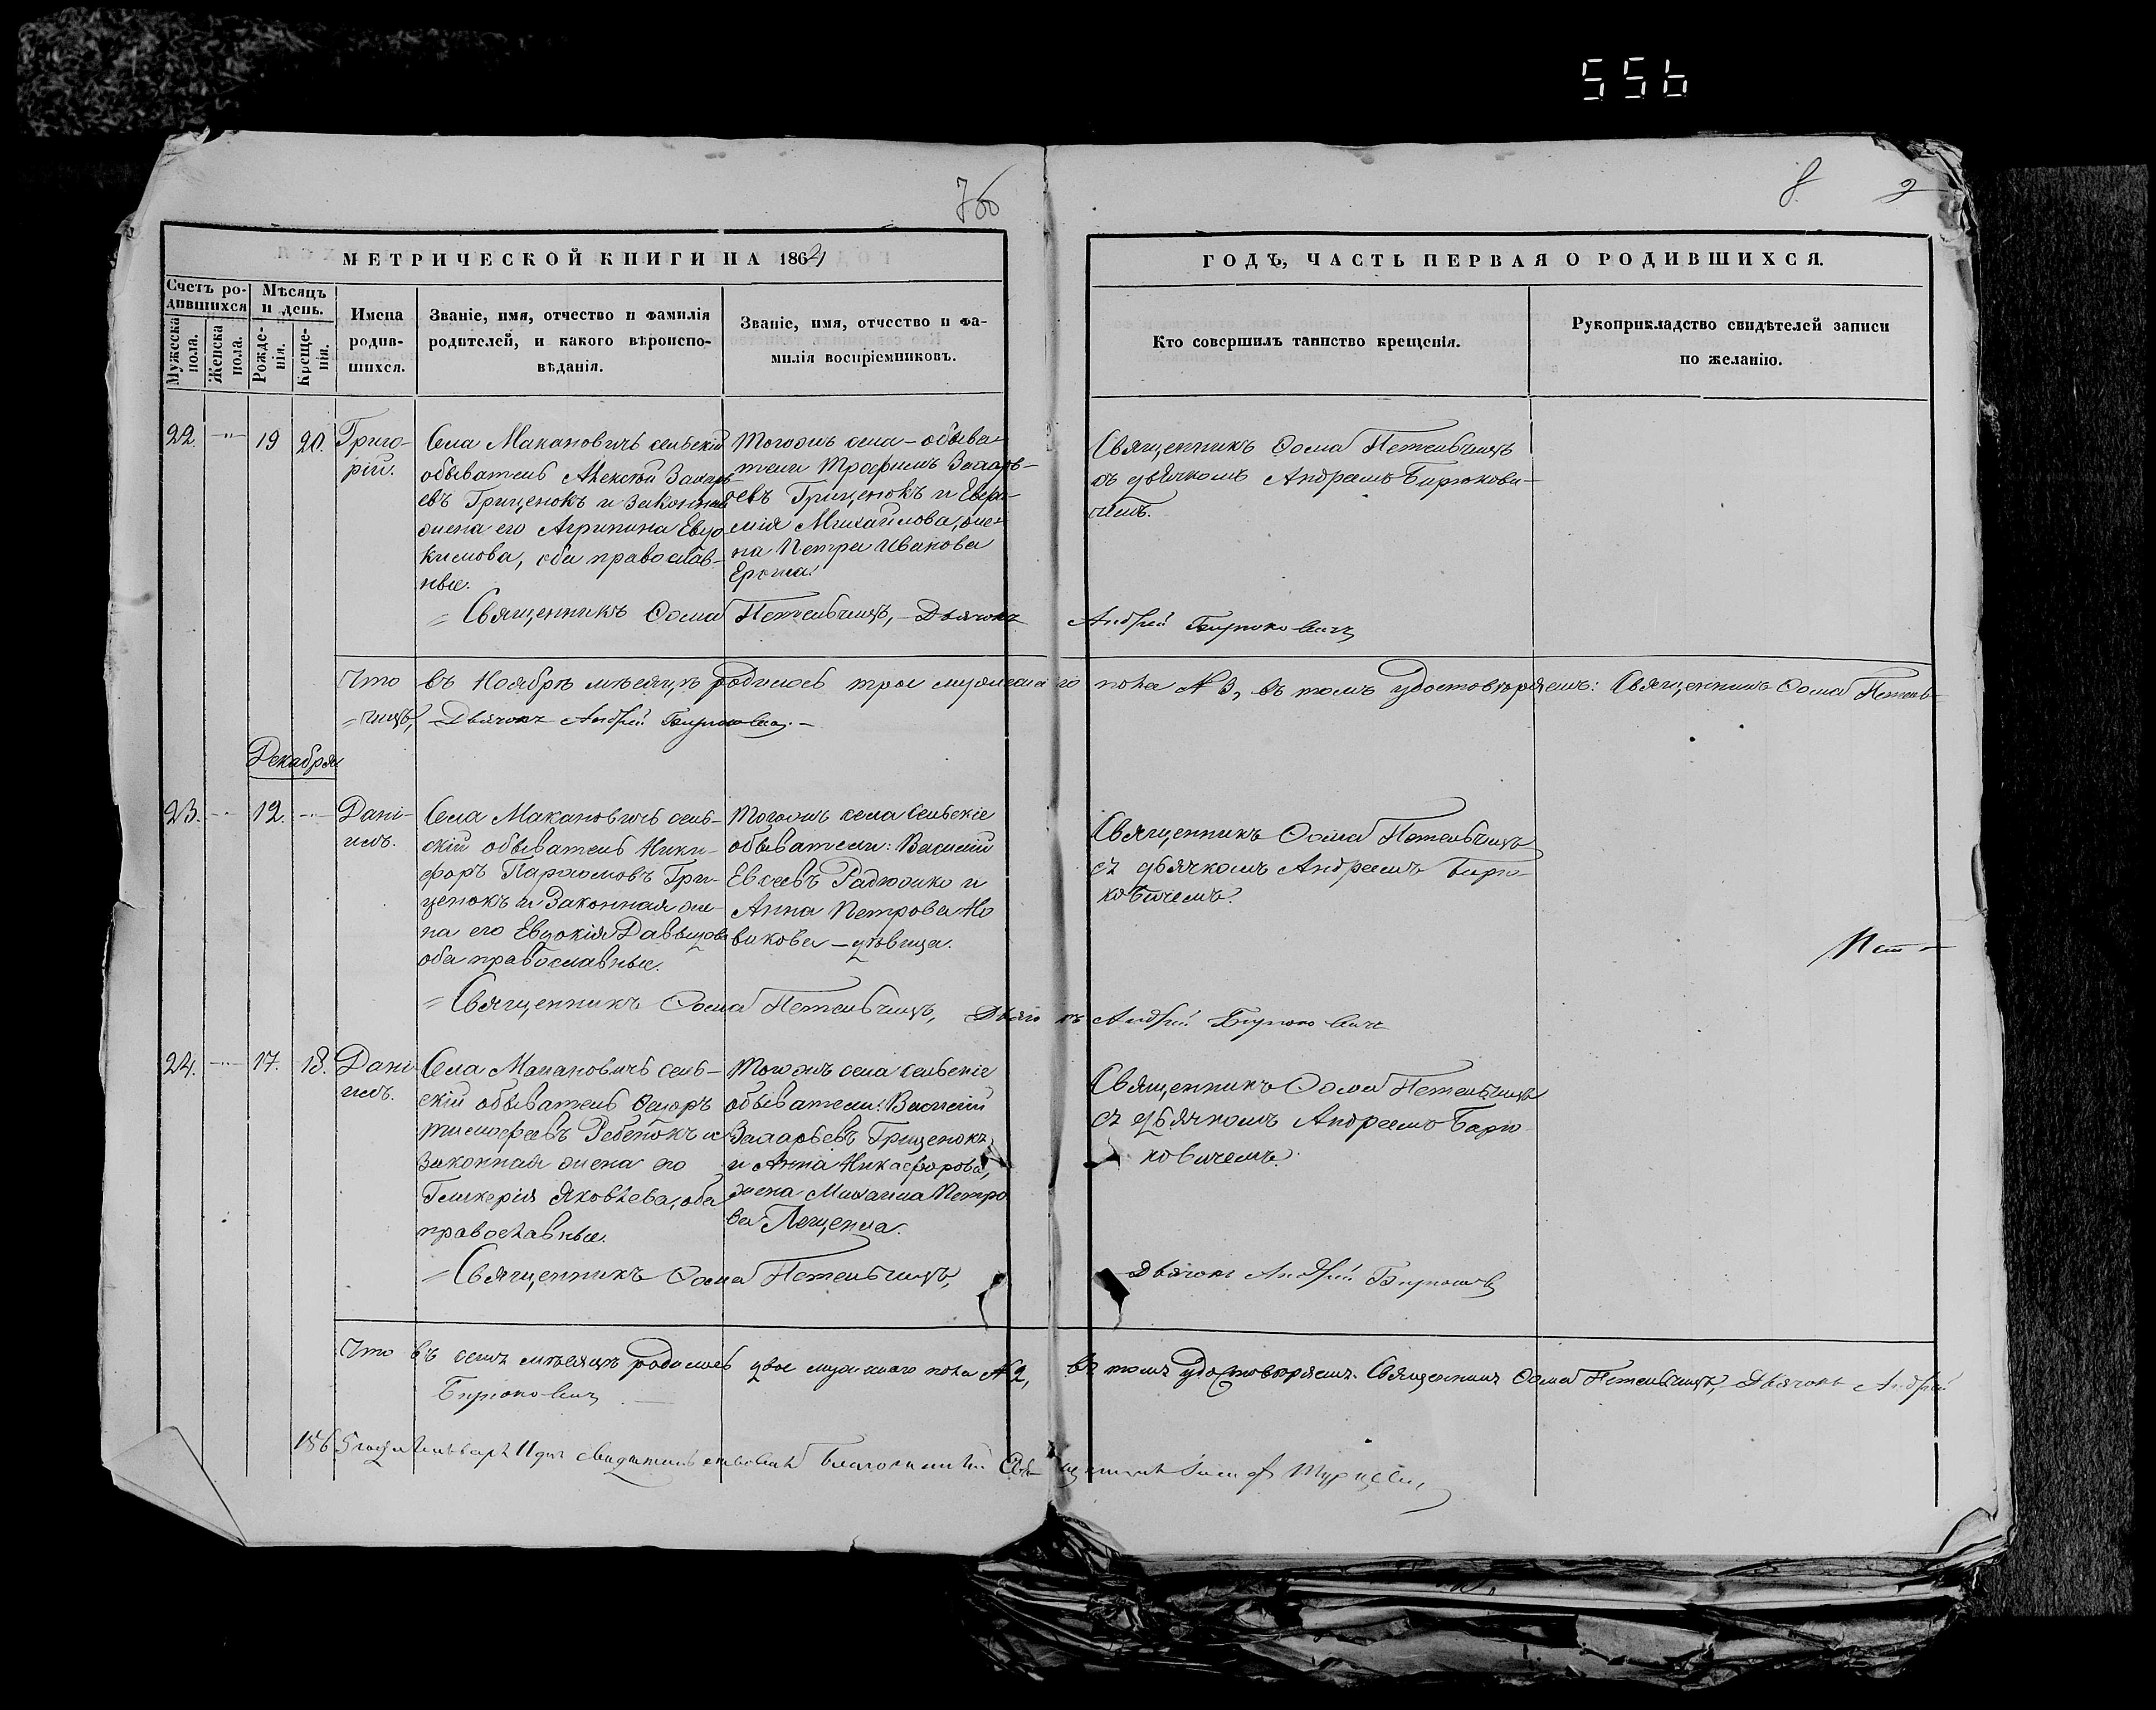 556
76
8.
2
МЕТРИЧЕСКОЙ КНИГИ НА 1864
ГОДЪ, ЧАСТЬ ПЕРВАЯ О РОДИВШИХСЯ.
Счетъ ро-
дившихся
Мѣсяцъ
и день.
Мужеска
пола.
Женска
пола.
Рожде-
нія.
Креще-
нія.
Имена
родив-
шихся.
Званіе, имя, отчество и фамилія
родителей, и какого вѣроиспо-
вѣданія.
Званіе, имя, отчество и фа-
милія воспріемниковъ.
Кто совершилъ таинство крещенія.
Рукоприкладство свидѣтелей записи
по желанію.
22. -"- 19 20.
Григо-
рій.
Села Макановичь сельскій
обыватель Алексѣй Захарь-
евъ Гриценокъ и законная
жена его Агрипина Евдо
кимова, оба православ-
ные.
Тогожъ села - обыва-
тели Трофимъ Захарь-
евъ Гриценокъ и Евфи-
мія Михайлова, же-
на Петра Иванова
Ероша.
Священникъ Ѳома Петельчицъ
съ дьячкомъ Андреемъ Бирюкови-
чемъ.
Священникъ Ѳома Петельчицъ, - Дьячокъ Андрей Бирюковичъ
Что въ Ноябрѣ мѣсяцѣ родилось трое мужескаго пола № 3, въ томъ удостовѣряемъ: Священникъ Ѳома Петель-
чицъ, Дьячокъ Андрей Бирюковичъ. -
Декабря
23. -"- 12. -"-
Дані-
илъ.
Села Макановичь сель-
скій обыватель Ники-
форъ Пархомовъ Гри-
ценокъ и Законная же-
на его Евдокія Давыдова
оба православные.
Тогожъ села Сельскіе
обыватели: Василій
Евсеевъ Радюшко и
Анна Петрова Но
викова - дѣвица.
Священникъ Ѳома Петельчицъ
съ дьячкомъ Андреемъ Бирю-
ковичемъ.
Священникъ Ѳома Петельчицъ, Дьячокъ Андрей Бирюковичъ
24. -"- 17. 18.
Дані
илъ.
Села Макановичь сель-
скій обыватель Ѳедоръ
Тимофеевъ Ребенокъ и
Законная жена его
Гликерія Яковлева, оба
православные.
Тогожъ села сельскіе
обыватели: Василій
Захарьевъ Гриценокъ
и Анна Никифорова,
жена Михаила Петро
ва Лещенка.
Священникъ Ѳома Петельчицъ
съ дьячкомъ Андреемъ Бирю
ковичемъ.
Священникъ Ѳома Петельчицъ,
Дьячокъ Андрей Бирюковичъ
Что въ семъ мѣсяцѣ родилось двое мужескаго пола № 2, въ томъ удостовѣряемъ. Священникъ Ѳома Петельчицъ, Дьячокъ Андрей
Бирюковичъ
1865 года Января 11 дня свидѣтельствовалъ Благочинный Священникъ